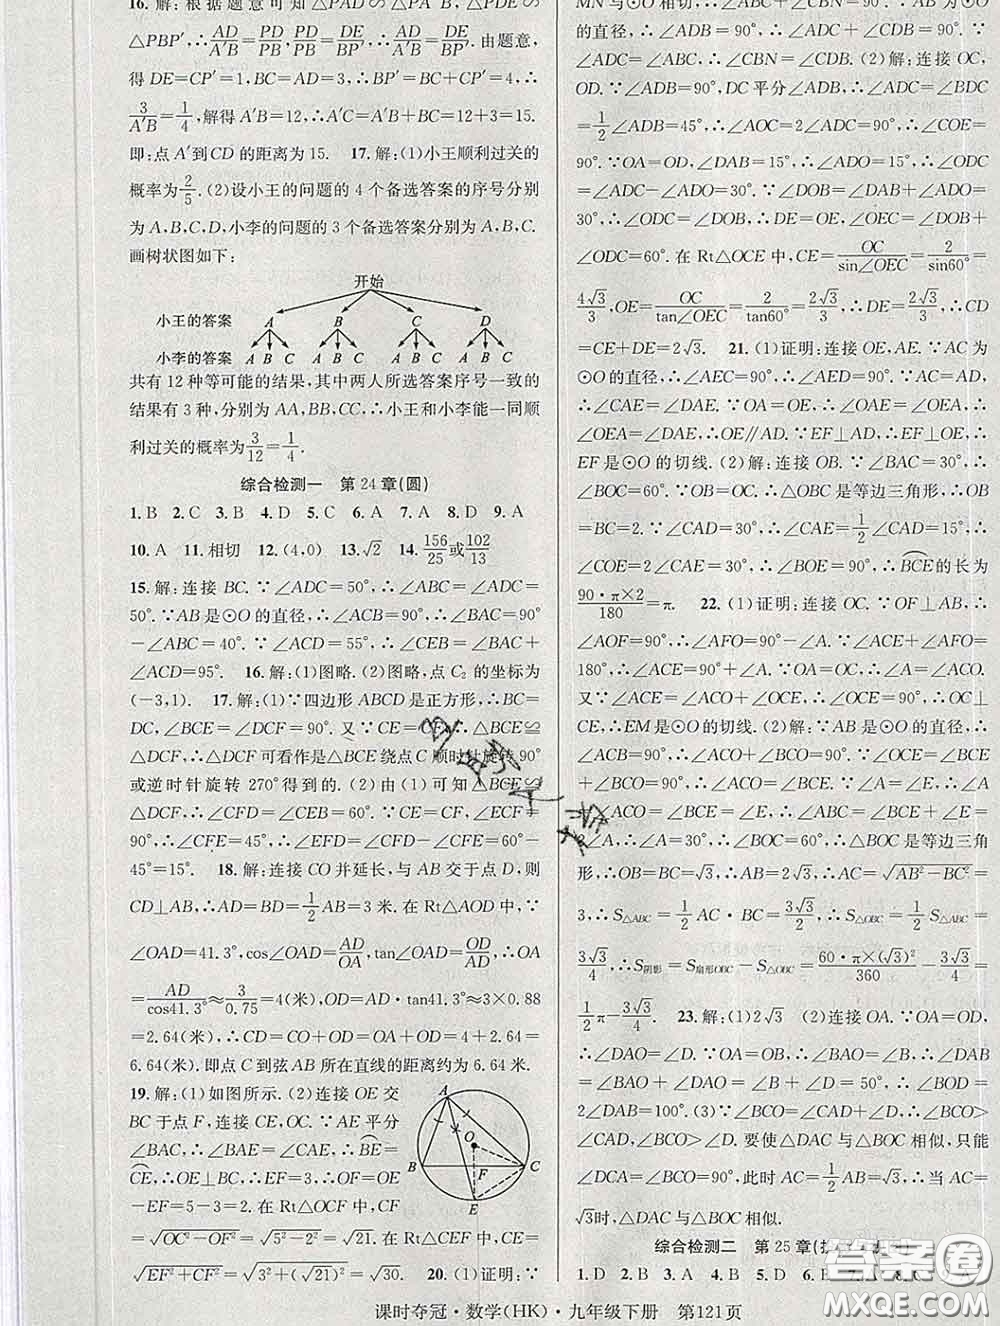 16. 解:根据题意可知△PAD∽△PA′B,△PDE∽
△PBP′,∴AD/A′B=PD/PB,PD/PB=DE/BP′,∴AD/A′B=DE/BP′.由题意,
得 DE=CP′=1,BC=AD=3,∴BP′=BC+CP′=4,∴
3/A′B=1/4,解得A′B=12,∴A′C=A′B+BC=12+3=15.
即:点 A′到CD 的距离为 15. 17. 解:(1)小王顺利过关的
概率为2/5. (2)设小王的问题的 4 个备选答案的序号分别
为 A,B,C,D,小李的问题的 3 个备选答案分别为 A,B,C.
画树状图如下:
开始
小王的答案 A B C D
小李的答案 A B C A B C A B C A B C
共有 12 种等可能的结果,其中两人所选答案序号一致的
结果有 3 种,分别为 AA,BB,CC,∴小王和小李能一同顺
利过关的概率为3/12=1/4.
综合检测一 第 24 章(圆)
1. B 2. C 3. B 4. D 5. C 6. A 7. A 8. D 9. A
10. A 11. 相切 12. (4,0) 13. √2 14. 156/25或102/13
15. 解:连接 BC. ∵∠ADC=50°,∴∠ABC=∠ADC=
50°. ∵AB 是⊙O 的直径,∴∠ACB=90°,∴∠BAC=90°
−∠ABC=40°. ∵∠ACD=55°,∴∠CEB=∠BAC+
∠ACD=95°. 16. 解:(1)图略. (2)图略,点 C₂ 的坐标为
(−3,1). 17. 解:(1)∵四边形 ABCD 是正方形,∴BC=
DC,∠BCE=∠DCF=90°. 又∵CE=CF,∴△BCE≌
△DCF,∴△DCF 可看作是△BCE 绕点 C 顺时针旋转 90°
或逆时针旋转 270°得到的. (2)由(1)可知△BCE≌
△DCF,∴∠CFD=∠BEC=60°. ∵CE=CF,∠ECF=
90°,∴∠CFE=45°,∴∠EFD=∠CFD−∠CFE=60°−
45°=15°. 18. 解:连接 CO 并延长,与 AB 交于点 D,则
CD⊥AB,∴AD=1/2AB=3 米. 在 Rt△AOD 中,∵
∠OAD=41.3°,cos∠OAD=AD/OA,tan∠OAD=OD/AD,∴OA
=AD/cos41.3°≈3/0.75=4(米),OD=AD·tan41.3°≈3×0.88
=2.64(米),∴CD=CO+OD=OA+OD=4+2.64=
6.64(米). 即点 C 到弦 AB 所在直线的距离约为 6.64 米.
19. 解:(1)如图所示. (2)连接 OE 交
BC 于点 F,连接 OC,CE. ∵AE 平分
∠BAC,∴∠BAE=∠CAE,∴BE=
CE,∴OE⊥BC,EF=3,∴OF=OE
−EF=5−3=2. 在 Rt△OCF 中,CF
=√(OC²−OF²)=√(5²−2²)=√21. 在 Rt△CEF 中,CE=
√(EF²+CF²)=√(3²+(√21)²)=√30. 20. (1)证明:∵
A B C E F O
MN 与⊙O 相切,
=90°,∴∠ADB=90°,
∠ADC=∠ABC,∴∠CBN=∠CDB. (2)解:连接 OC,
OD. ∵∠ADB=90°,DC 平分∠ADB,∴∠ADC=∠BDC
=1/2∠ADB=45°,∴∠AOC=2∠ADC=90°,∴∠COE=
90°. ∵OA=OD,∠DAB=15°,∴∠ADO=15°,∴∠ODC
=∠ADC−∠ADO=30°. ∵∠DOB=∠DAB+∠ADO=
30°,∴∠ODC=∠DOB,∴DE=OE,∠OEC=∠DOB+
∠ODC=60°. 在 Rt△OCE 中,CE=OC/sin∠OEC=2/sin60°=
4√3/3,OE=OC/tan∠OEC=2/tan60°=2√3/3,∴DE=2√3/3,∴CD
=CE+DE=2√3. 21. (1)证明:连接 OE,AE. ∵AC 为
⊙O 的直径,∴∠AEC=90°,∴∠AED=90°. ∵AC=AD,
∴∠CAE=∠DAE. ∵OA=OE,∴∠OAE=∠OEA,∴
∠OEA=∠DAE,∴OE∥AD. ∵EF⊥AD,∴EF⊥OE,∴
EF 是⊙O 的切线. (2)解:连接 OB. ∵∠BAC=30°,∴
∠BOC=60°. ∵OB=OC,∴△OBC 是等边三角形,∴OB
=BC=2. ∵∠CAD=30°,∴∠CAE=1/2∠CAD=15°,∴
∠COE=2∠CAE=30°,∴∠BOE=90°,∴BCE的长为
90·π×2/180=π. 22. (1)证明:连接 OC. ∵OF⊥AB,∴
∠AOF=90°,∴∠AFO=90°−∠A. ∵∠ACE+∠AFO=
180°,∴∠ACE=90°+∠A. ∵OA=OC,∴∠A=∠ACO.
又∵∠ACE=∠ACO+∠OCE,∴∠OCE=90°,∴OC⊥
CE,∴EM 是⊙O 的切线. (2)解:∵AB 是⊙O 的直径,∴
∠ACB=90°,∴∠ACO+∠BCO=90°. ∵∠BCE+∠BCO
=∠OCE=90°,
∠A,∴∠A=30°,∴∠BOC=60°,∴△BOC 是等边三角
形,∴OB=BC=√3,∴AB=2√3,∴AC=√(AB²−BC²)=
3,∴S△ABC=1/2AC·BC=3√3/2,∴S△OBC=1/2S△ABC=
3√3/4,∴S阴影=S扇形OBC−S△OBC=60·π×(√3)²/360−3√3/4=
1/2π−3√3/4. 23. 解:(1)2√3 (2)连接 OA. ∵OA=OD,
∴∠DAO=∠D. ∵OA=OB,∴∠BAO=∠B. ∴∠DAB=
∠BAO+∠DAO=∠B+∠D=50°,∴∠BOD=
2∠DAB=100°. (3)∵∠BCO=∠CAD+∠D,∴∠BCO>
∠CAD,∠BCO>∠D. 要使△DAC 与△BOC 相似,只能
∠DCA=∠BCO=90°,此时 AC=1/2AB=√3,∴当 AC=
√3时,△DAC 与△BOC 相似.
综合检测二 第 25 章
1. D 2. B
课时夺冠·数学(HK)·九年级下册 第121页
答案圈